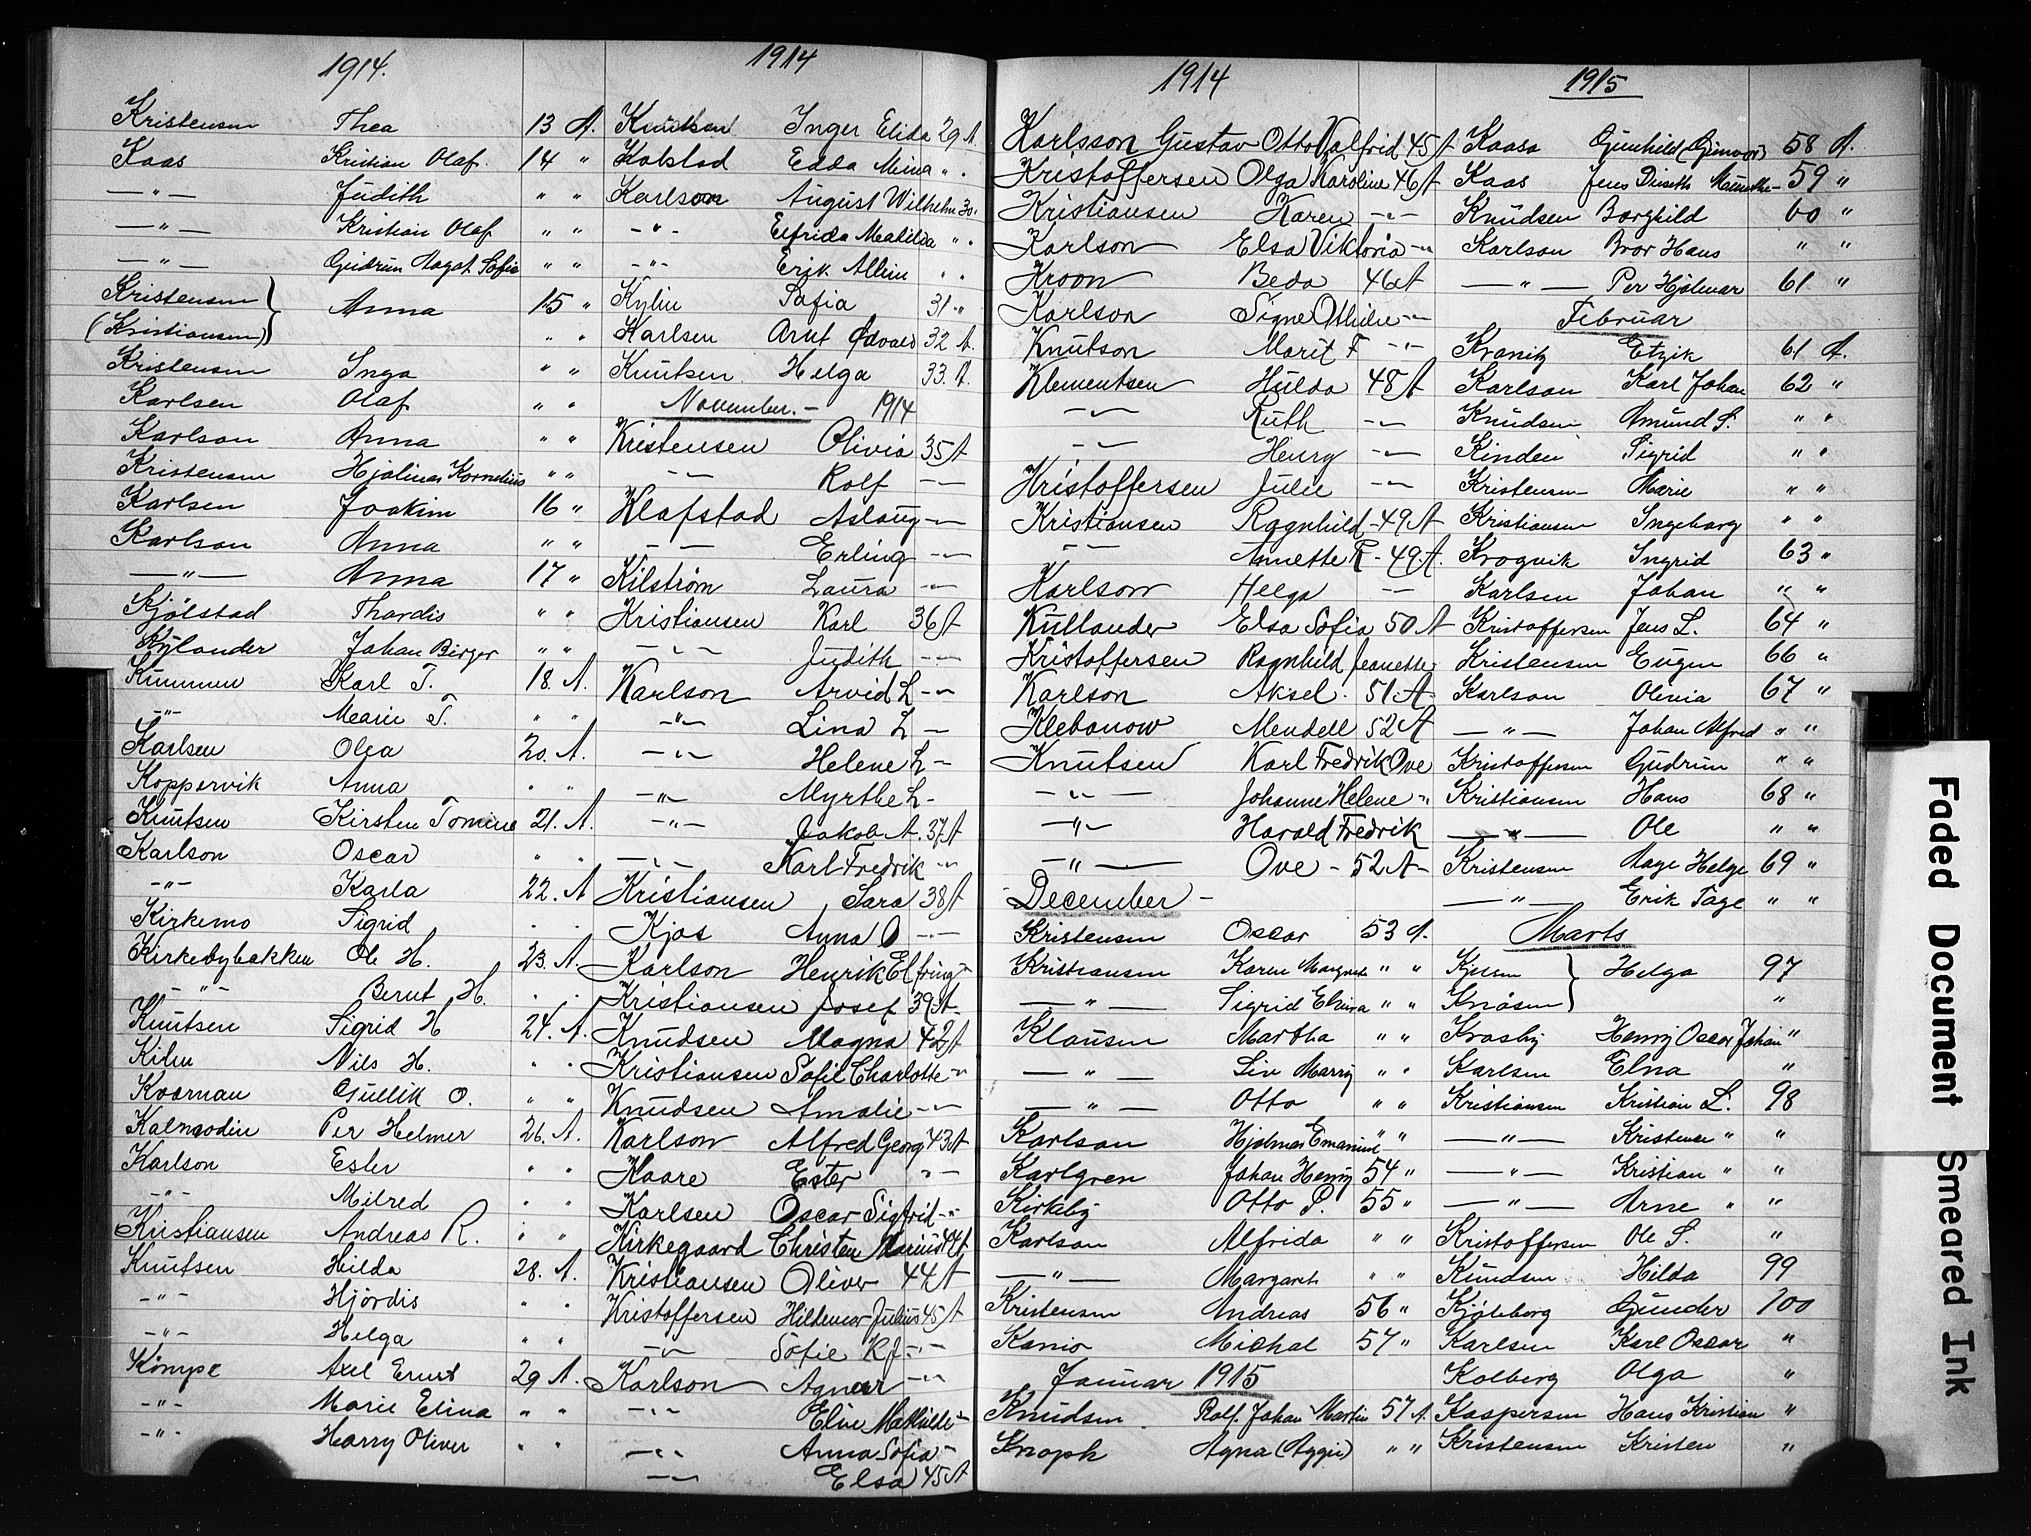 1914.
Kristensen Thea 13 A.
Kaas Kristian Olaf. 14 "
—"— Judith " "
—"— Kristian Olaf " "
—"— Gudrun Aagot Sofie " "
Kristensen } Anna 15 "
(Kristiansen) } " "
Kristensen Inga " "
Karlsen Olaf " "
Karlson Anna " "
Kristensen Hjalmar Kornelius " "
Karlsen Joakim 16 "
Karlson Anna " "
—"— Anna 17 "
Kjölstad Thordis " "
Kylander Johan Birger " "
Kummen Karl T. 18. A.
-"- Marie T. " "
Karlsen Olea 20. A.
Koppervik Anna " "
Knutsen Kirsten Tomine 21. A.
Karlson Oscar " "
-"- Karla 22. A
Kirkemo Sigrid " "
Kirkebybakken Ole H. 23. A.
-"- Bernt H. " "
Knutsen Sigrid H 24. A.
Kihn Nils H. " "
Kvarnan Gullik O. " "
Per Helmer 26. A.
Karlson Ester " "
-"- Milred " "
Kristiansen Andreas R. " "
Knutsen Hilda 28. A.
-"- Hjördis " "
-"- Helga " "
Kömpe Axel Ernst 29 A.
-"- Marie Elina " "
-"- Harry Oliver " "
1914
Knutsen Inger Elida 29 A.
Kolstad Edda Meina " "
Karlson August Wilhelm 30 "
-"- Elfrida Matilda " "
-"- Erik Albin " "
Kylin Sofia 31 "
Karlsen Arnt Edvald 32 A.
Knutsen Helga 33. A.
November. - 1914
Kristensen Olivia 35 A
-"- Rolf -"-
Klafstad Aslaug -"-
-"- Erling -"-
Kilström Laura -"-
Kristiansen Karl 36 A
-"- Judith -"-
Karlson Arvid L -"-
-"- Lina L -
-"- Helene L -
-"- Myrthe L -
-"- Jakob A. 37 A
-"- Karl Fredrik -"-
Kristiansen Sara 38 A
Kjos Anna O -"-
Karlson Henrik Elfring -"-
Kristiansen Josef 39 A
Knudsen Magna 42 A
Kristiansen Sofie Charlotte -"-
Knudsen Amalie -"-
Karlson Alfred Georg 43 A
Haare Ester "-
Karlsen Oscar Sigfrid -"-
Kirkegaard Christen Marius 44 A.
Kristiansen Oliver 44 A
Kristoffersen Hildemar Julius 45 A
-"- Sofie K J -"-
Karlson Agnar -"-
-"- Eline Mathilde -"-
-"- Anna Sofia -
-"- Elsa 45 A
1914
Karlsson Gustav Otto Valfrid 45 A
Kristoffersen Olga Karoline 46 A
Kristiansen Karen -"-
Karlson Elsa Viktoria -"-
Kroon Beda 46 A
Karlson Signe Othilie -"-
Knutson Marit F -"-
Klementsen Hulda 48 A
-"- Ruth -"-
-"- Henry -"-
Kristoffersen Julie -"-
Kristiansen Ragnhild - 49 A
-"- Annette R - 49. A.
Karlson Helga -"-
Kullander Elsa Sofia 50 A
Kristoffersen Ragnhild Jeanette
Karlson Aksel. 51. A
Klebanow Mendell 52 A
Knutsen Karl Fredrik Ove
-"- Johanne Helene -"-
-"- Harald Fredrik
-"- Ove - 52 A
December -
Kristensen Oscar 53 A.
Kristiansen Karen Margrete " "
—"— Sigrid Elvira " "
Klausen Martha " "
—"— Liv Marry " "
—"— Otto " "
Karlson Hjalmar Emanuel " "
Karlgren Johan Henry 54 "
Kirkeby Otto P. 55 "
Karlson Alfrida " "
—"— Margaret " "
Kristensen Andreas 56 "
Kanio Michal 57 "
Januar 1915
Knudsen Rolf Johan Martin 57 A.
Knoph Agna (Aggie) " "
1915
Kaasa Gunhild (Gunvor) 58 A.
Kaas Jens Diseth Munthe - 59 "
Knudsen Borghild 60 "
Karlson Bror Hans " "
—"— Per Hjalmar 61 "
Februar
Kranitz Etzik 61 A.
Karlson Karl Johan 62 "
Knudsen Amund S. " "
Kinden Sigrid " "
Kristensen Marie " "
Kristiansen Ingeborg " "
Krogvik Ingrid 63 "
Karlsen Johan " "
Kristoffersen Jens L. 64 "
Kristensen Eugen 66 "
Karlson Olivia 67 "
—"— Johan Alfred " "
Kristoffersen Gudrun " "
Kristiansen Hans 68 "
—"— Ole " "
Kristensen Aage Helge 69 "
—"— Erik Tage " "
Marts
} Helga 97
Knösen } "
Krosby Henry Oscar Johan "
Karlsen Elna "
Kristiansen Kristian L. 98
—"— Kristine " "
—"— Kristian " "
—"— Arne " "
Kristoffersen Ole S. "
Knudsen Hilda 99
Kjölberg Gunder 100
Karlsen Karl Oscar "
Kolberg Olga "
Kaspersen Hans Kristian "
Kristensen Kristen "
Faded Document
Smeared Ink